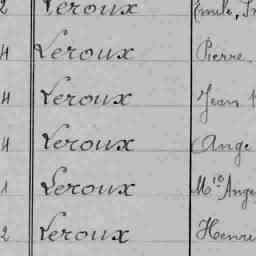 2 Leroux Emile, 
4 Leroux Pierre.
4 Leroux Jean
4 Leroux Ange
1 Leroux Mie Ange
2 Leroux Henri